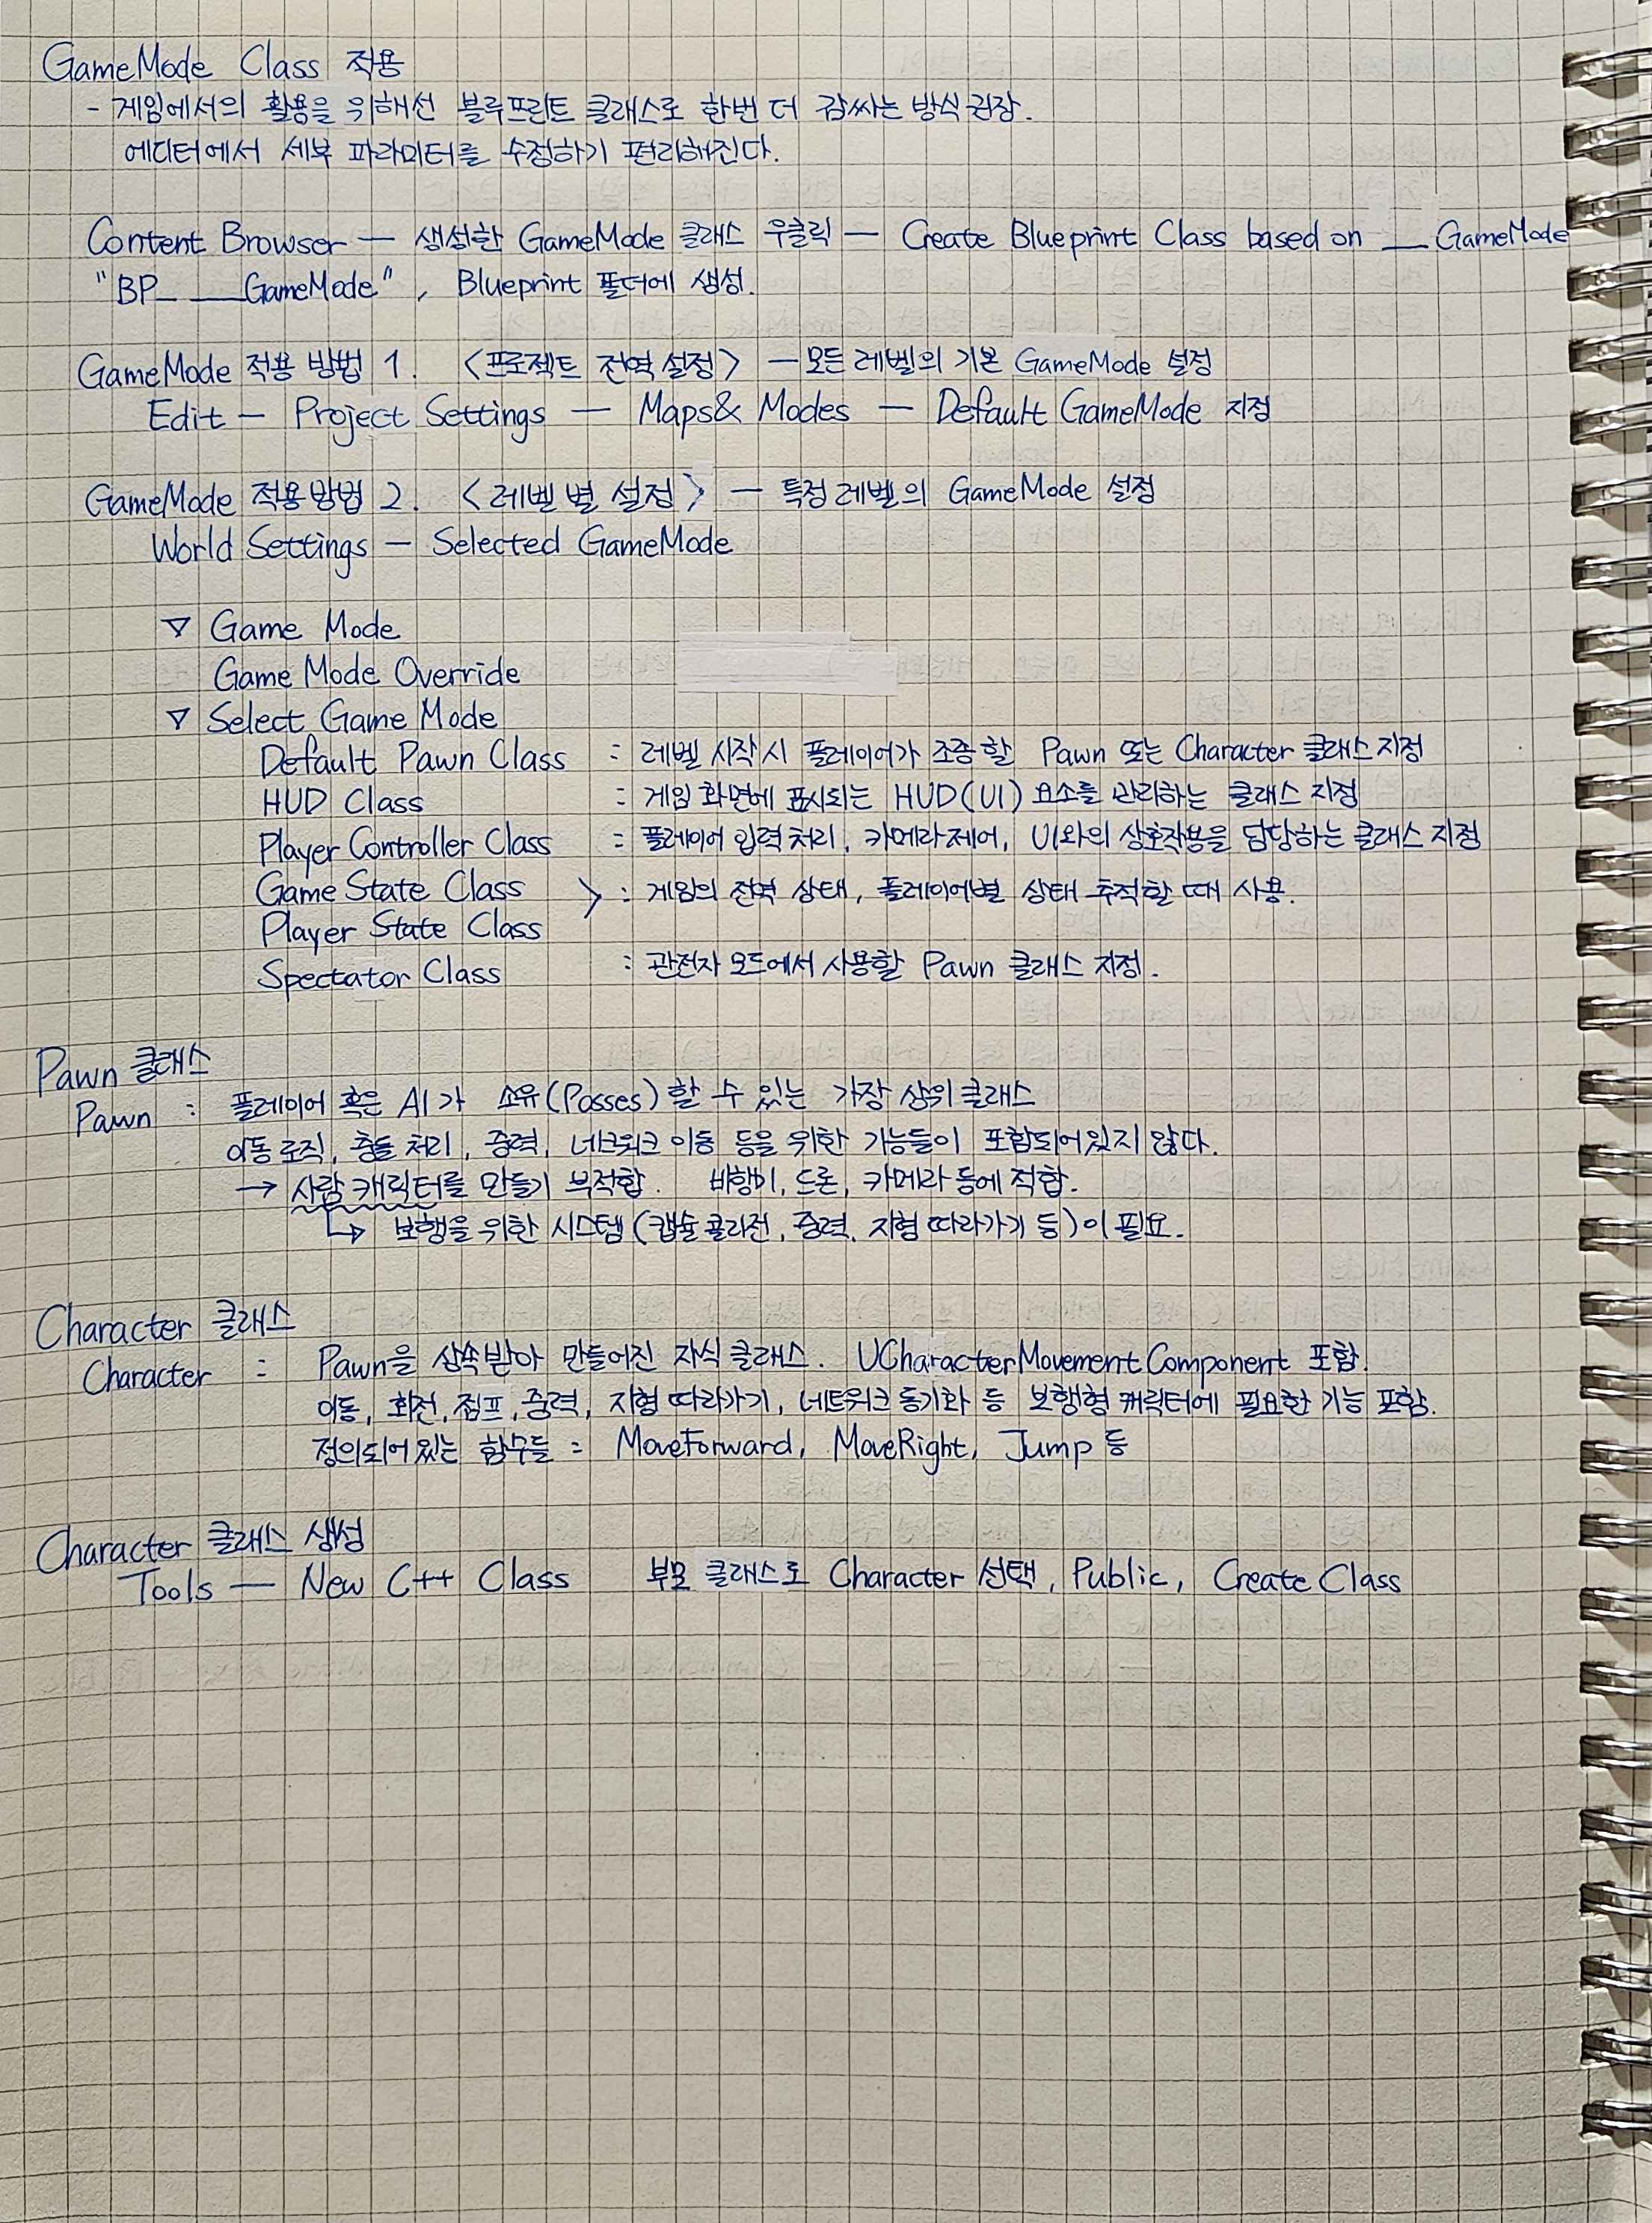 GameMode Class 적용
- 게임에서의 활용을 위해선 블루프린트 클래스로 한번 더 감싸는 방식 권장.
에디터에서 세부 파라미터를 수정하기 편리해진다.
Content Browser — 생성한 GameMode 클래스 우클릭 — Create Blueprint Class based on __ GameMode
"BP_ __GameMode", Blueprint 폴더에 생성.
GameMode 적용 방법 1. <프로젝트 전역 설정> — 모든 레벨의 기본 GameMode 설정
Edit — Project Settings — Maps& Modes — Default GameMode 지정
GameMode 적용방법 2. <레벨 별 설정> — 특정 레벨의 GameMode 설정
World Settings — Selected GameMode
▽ Game Mode
Game Mode Override
▽ Select Game Mode
Default Pawn Class : 레벨 시작 시 플레이어가 조종할 Pawn 또는 Character 클래스 지정
HUD Class : 게임 화면에 표시되는 HUD(UI) 요소를 관리하는 클래스 지정
Player Controller Class : 플레이어 입력 처리, 카메라 제어, UI와의 상호작용을 담당하는 클래스 지정
Game State Class > : 게임의 전역 상태, 플레이어별 상태 추적할 때 사용.
Player State Class
Spectator Class : 관전자 모드에서 사용할 Pawn 클래스 지정.
Pawn 클래스
Pawn : 플레이어 혹은 AI가 소유(Posses) 할 수 있는 가장 상위 클래스
이동 로직, 충돌 처리, 중력, 네크워크 이동 등을 위한 기능들이 포함되어있지 않다.
→ 사람 캐릭터를 만들기 부적합. 비행기, 드론, 카메라 등에 적합.
↳ 보행을 위한 시스템 (캡슐 콜리전, 중력, 지형 따라가기 등)이 필요.
Character 클래스
Character : Pawn을 상속받아 만들어진 자식 클래스. UCharacterMovementComponent 포함.
이동, 회전, 점프, 중력, 지형 따라가기, 네트워크 동기화 등 보행형 캐릭터에 필요한 기능 포함.
정의되어 있는 함수들 = MoveForward, MoveRight, Jump 등
Character 클래스 생성
Tools — New C++ Class 부모 클래스로 Character 선택, Public, Create Class